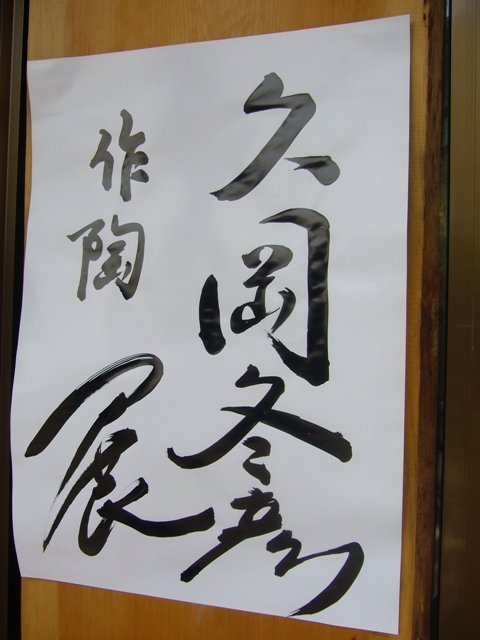 久岡冬彦
作陶展